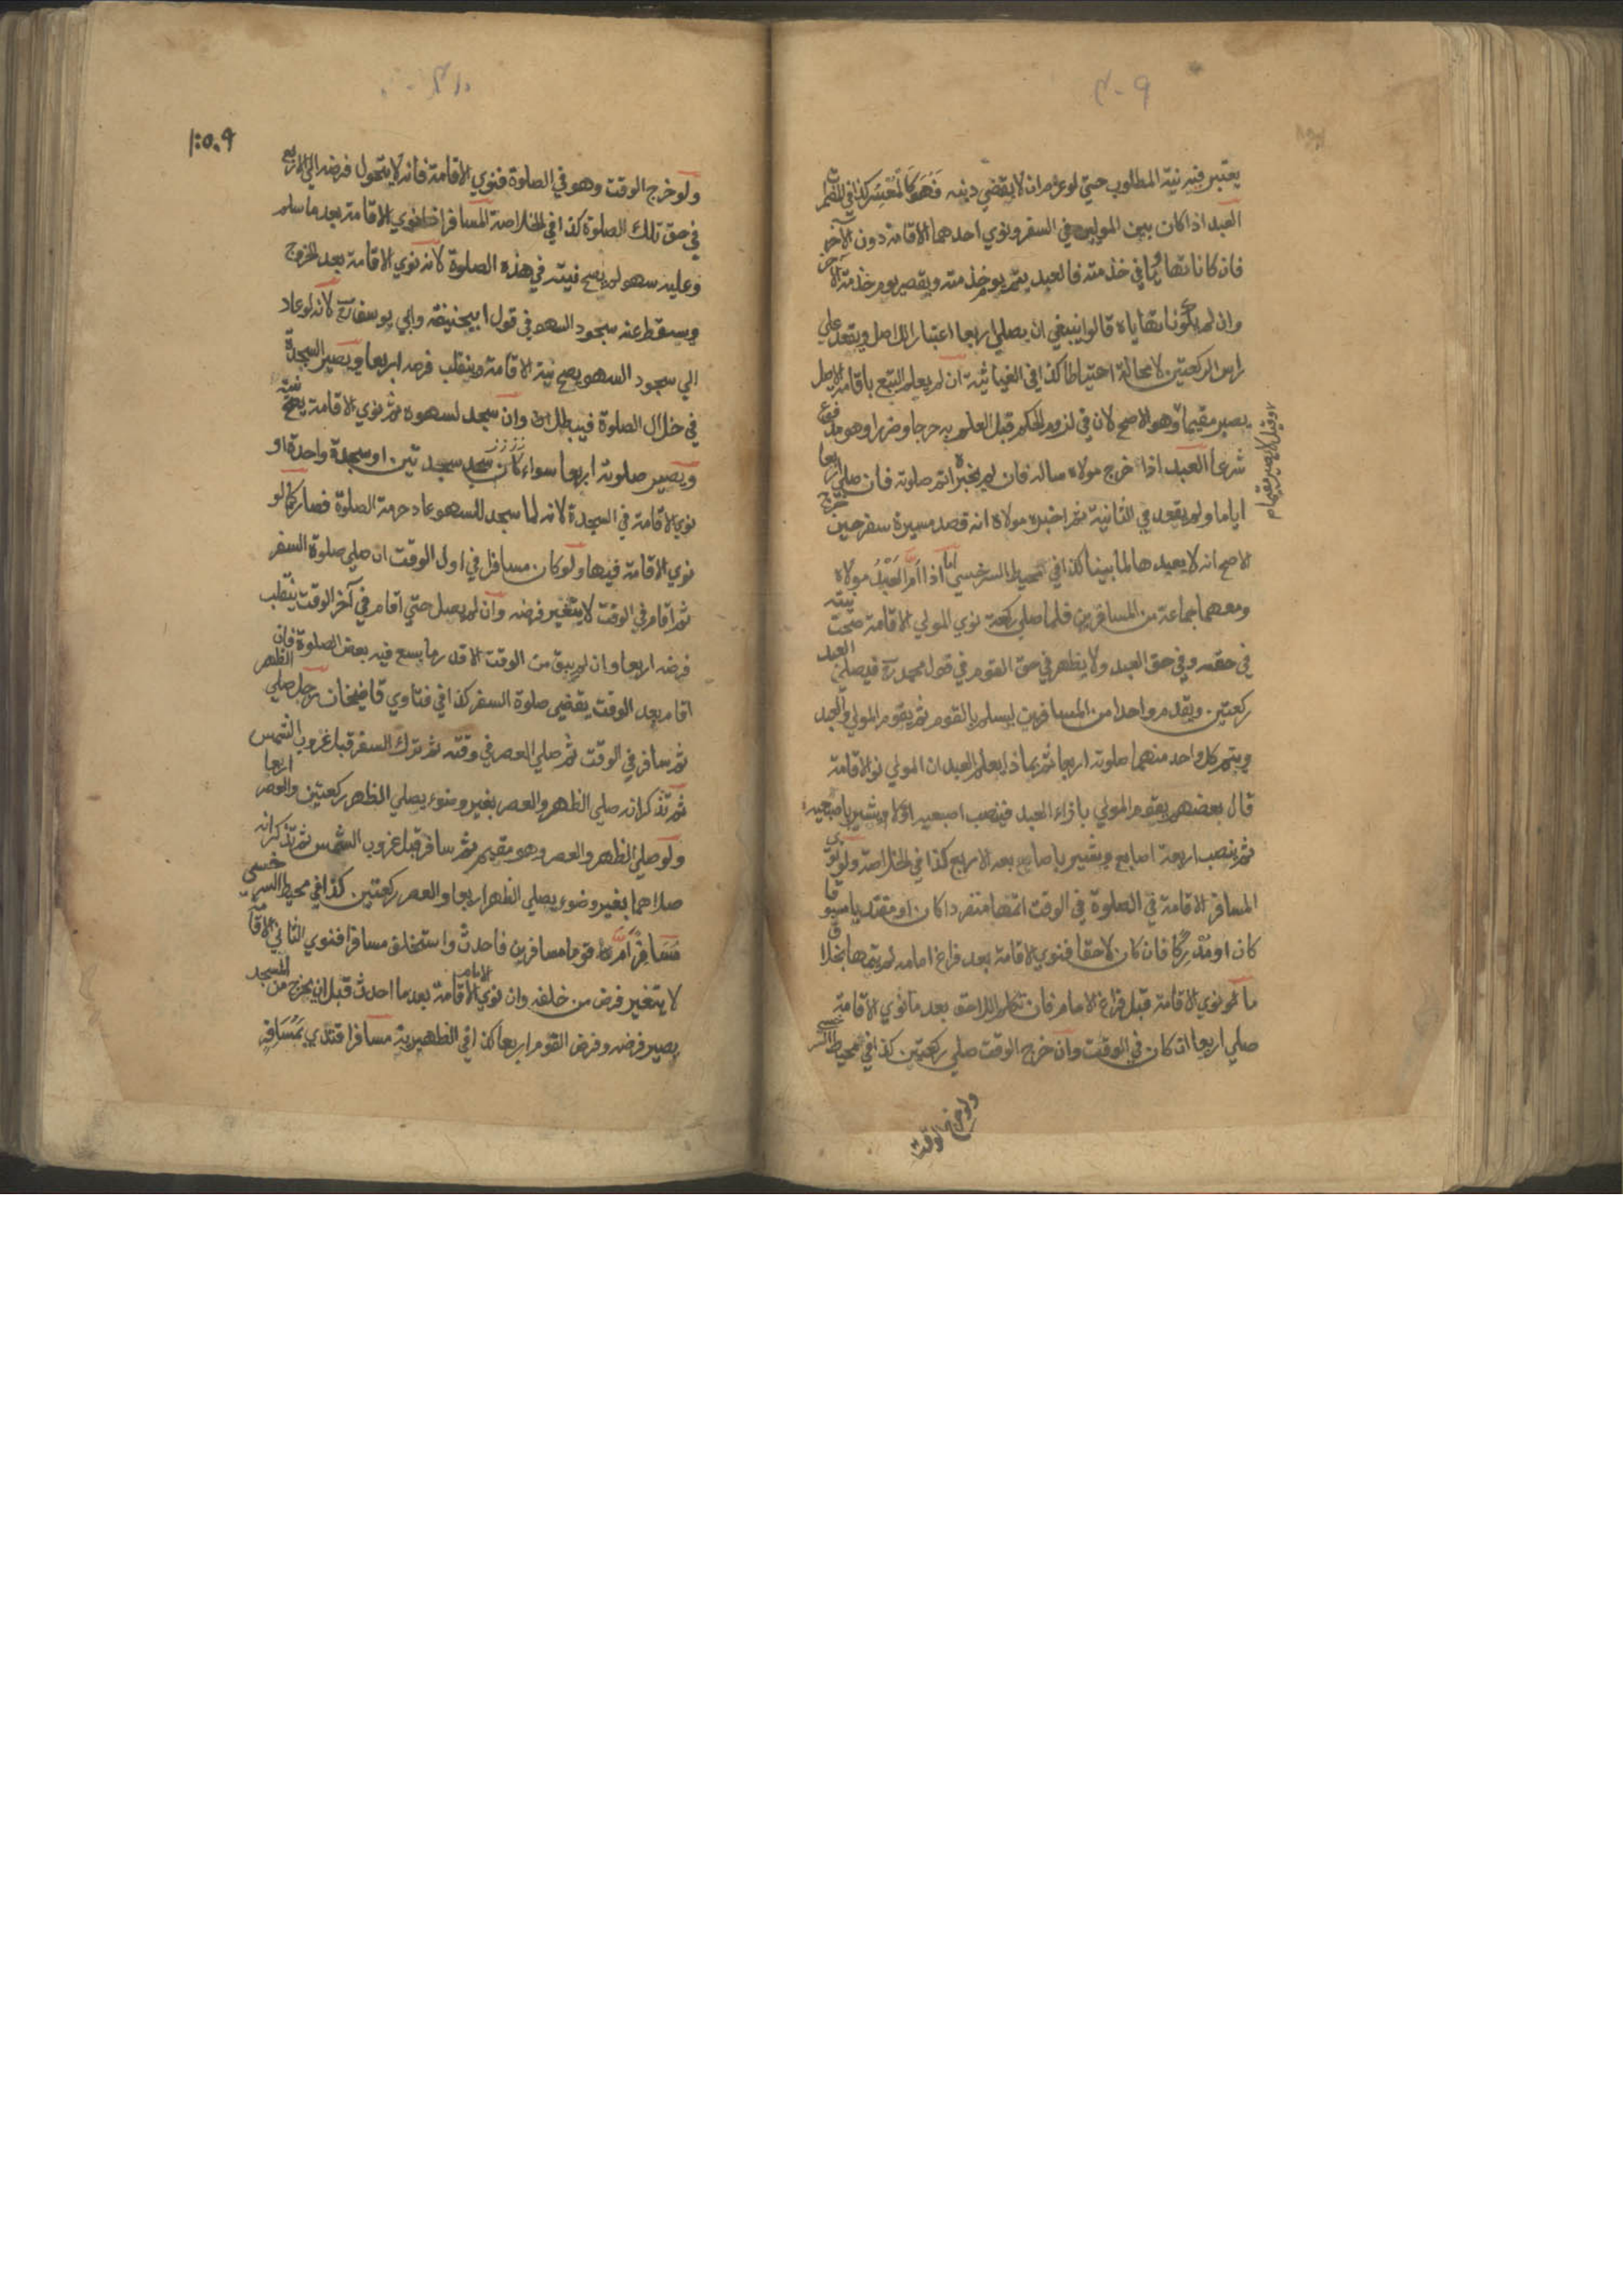 يعتبر فيه نية المطلوب حتي لوعزم ان لا يقضي دينه فهو كالمعسر كذا في المضمرات
العبد اذا كان بين الموليين في السفر ونوي احدهما الاقامة دون الآخر
فان كانا تهايئا في خدمته فالعبد يتم يوم خدمته ويقصر يوم خدمة الآخر
وان لم يكونا تهاياه قالوا ينبغي ان يصلي اربعا اعتبارا للاصل ويقعد علي
راس الركعتين لا محالة احتياطا كذا في الغياثية ان لم يعلم التبع باقامة الاصل
يصير مقيما وهو الاصح لان في لزوم الحكم قبل العلم به حرجا وضررا وهو مدفوع
وقيل لا يصير مقيما
شرعا العبد اذا خرج مولاه ساله فان لم يخبره اتم صلوته فان صلي اربعا
اياما ولم يقعد في الثانية ثم اخبره مولاه انه قصد مسيرة سفر حين خرج
الاصح انه لا يعيدها لما بينا كذا في محيط السرخسي اما اذا ام العبد مولاه
ومعهما جماعة من المسافرين فلما صلي ركعة نوي المولي الاقامة صحت نيته
في حقه وفي حق العبد ولا يظهر في حق القوم في قول محمد رح فيصلي العبد
ركعتين ويقدم واحدا من المسافرين ليسلم بالقوم ثم يقوم المولي والعبد
ويتم كل واحد منهما صلوته اربعا ثم بماذا يعلم العبد ان المولي نوالاقامة
قال بعضهم يقوم المولي بازاء العبد فينصب اصبعيه اولا ويشير باصبعيه
ثم ينصب اربعة اصابع ويشير باصابعه الاربع كذا في الخلاصة ولو نوي
المسافر الاقامة في الصلوة في الوقت اتمها منفردا كان او مقتديا مسبوقا
كان او مدركا فان كان لاحقا فنوي الاقامة بعد فراغ امامه لم يتمها بخلاف
ما لو نوي الاقامة قبل فراغ الامام فان تكلم اللاحق بعد ما نوي الاقامة
صلي اربعا ان كان في الوقت وان خرج الوقت صلي ركعتين كذا في محيط السرخسي
ولو خرج الوقت
١٥٠٩
ولو خرج الوقت وهو في الصلوة فنوي الاقامة فانه لا يتحول فرضه الي الاربع
في حق تلك الصلوة كذا في الخلاصة المسافر اذا نوي الاقامة بعد ما سلم
وعليه سهو لم يصح نيته في هذه الصلوة لانه نوي الاقامة بعد الخروج
ويسقط عنه سجود السهو في قول ابيحنيفة وابي يوسف رح لانه لو عاد
الي سجود السهو يصح نية الاقامة وينقلب فرضه اربعا ويصير السجدة
في خلال الصلوة فيبطل وان سجد لسهوه ثم نوي الاقامة يصح نيته
ويصير صلوته اربعا سواء كان سجد سجدتين او سجدة واحدة او
نوي الاقامة في السجدة لانه لما سجد للسهو عاد حرمة الصلوة فصار كما لو
نوي الاقامة فيها ولو كان مسافرا في اول الوقت ان صلي صلوة السفر
ثم اقام في الوقت لا يتغير فرضه وان لم يصل حتي اقام في آخر الوقت ينقلب
فرضه اربعا وان لم يبق من الوقت الا قدر ما يسع فيه بعض الصلوة فان
اقام بعد الوقت يقضي صلوة السفر كذا في فتاوي قاضيخان رجل صلي الظهر
ثم سافر في الوقت ثم صلي العصر في وقته ثم ترك السفر قبل غروب الشمس
ثم تذكر انه صلي الظهر والعصر بغير وضوء يصلي الظهر ركعتين والعصر اربعا
ولو صلي الظهر والعصر وهو مقيم ثم سافر قبل غروب الشمس ثم تذكر انه
صلاهما بغير وضوء يصلي الظهر اربعا والعصر ركعتين كذا في محيط السرخسي
مسافر ام قوما مسافرين فاحدث واستخلف مسافرا فنوي الثاني الاقامة
لا يتغير فرض من خلفه وان نوي الامام الاقامة بعد ما احدث قبل ان يخرج من المسجد
يصير فرضه وفرض القوم اربعا كذا في الظهيرية مسافر اقتدي بمسافر